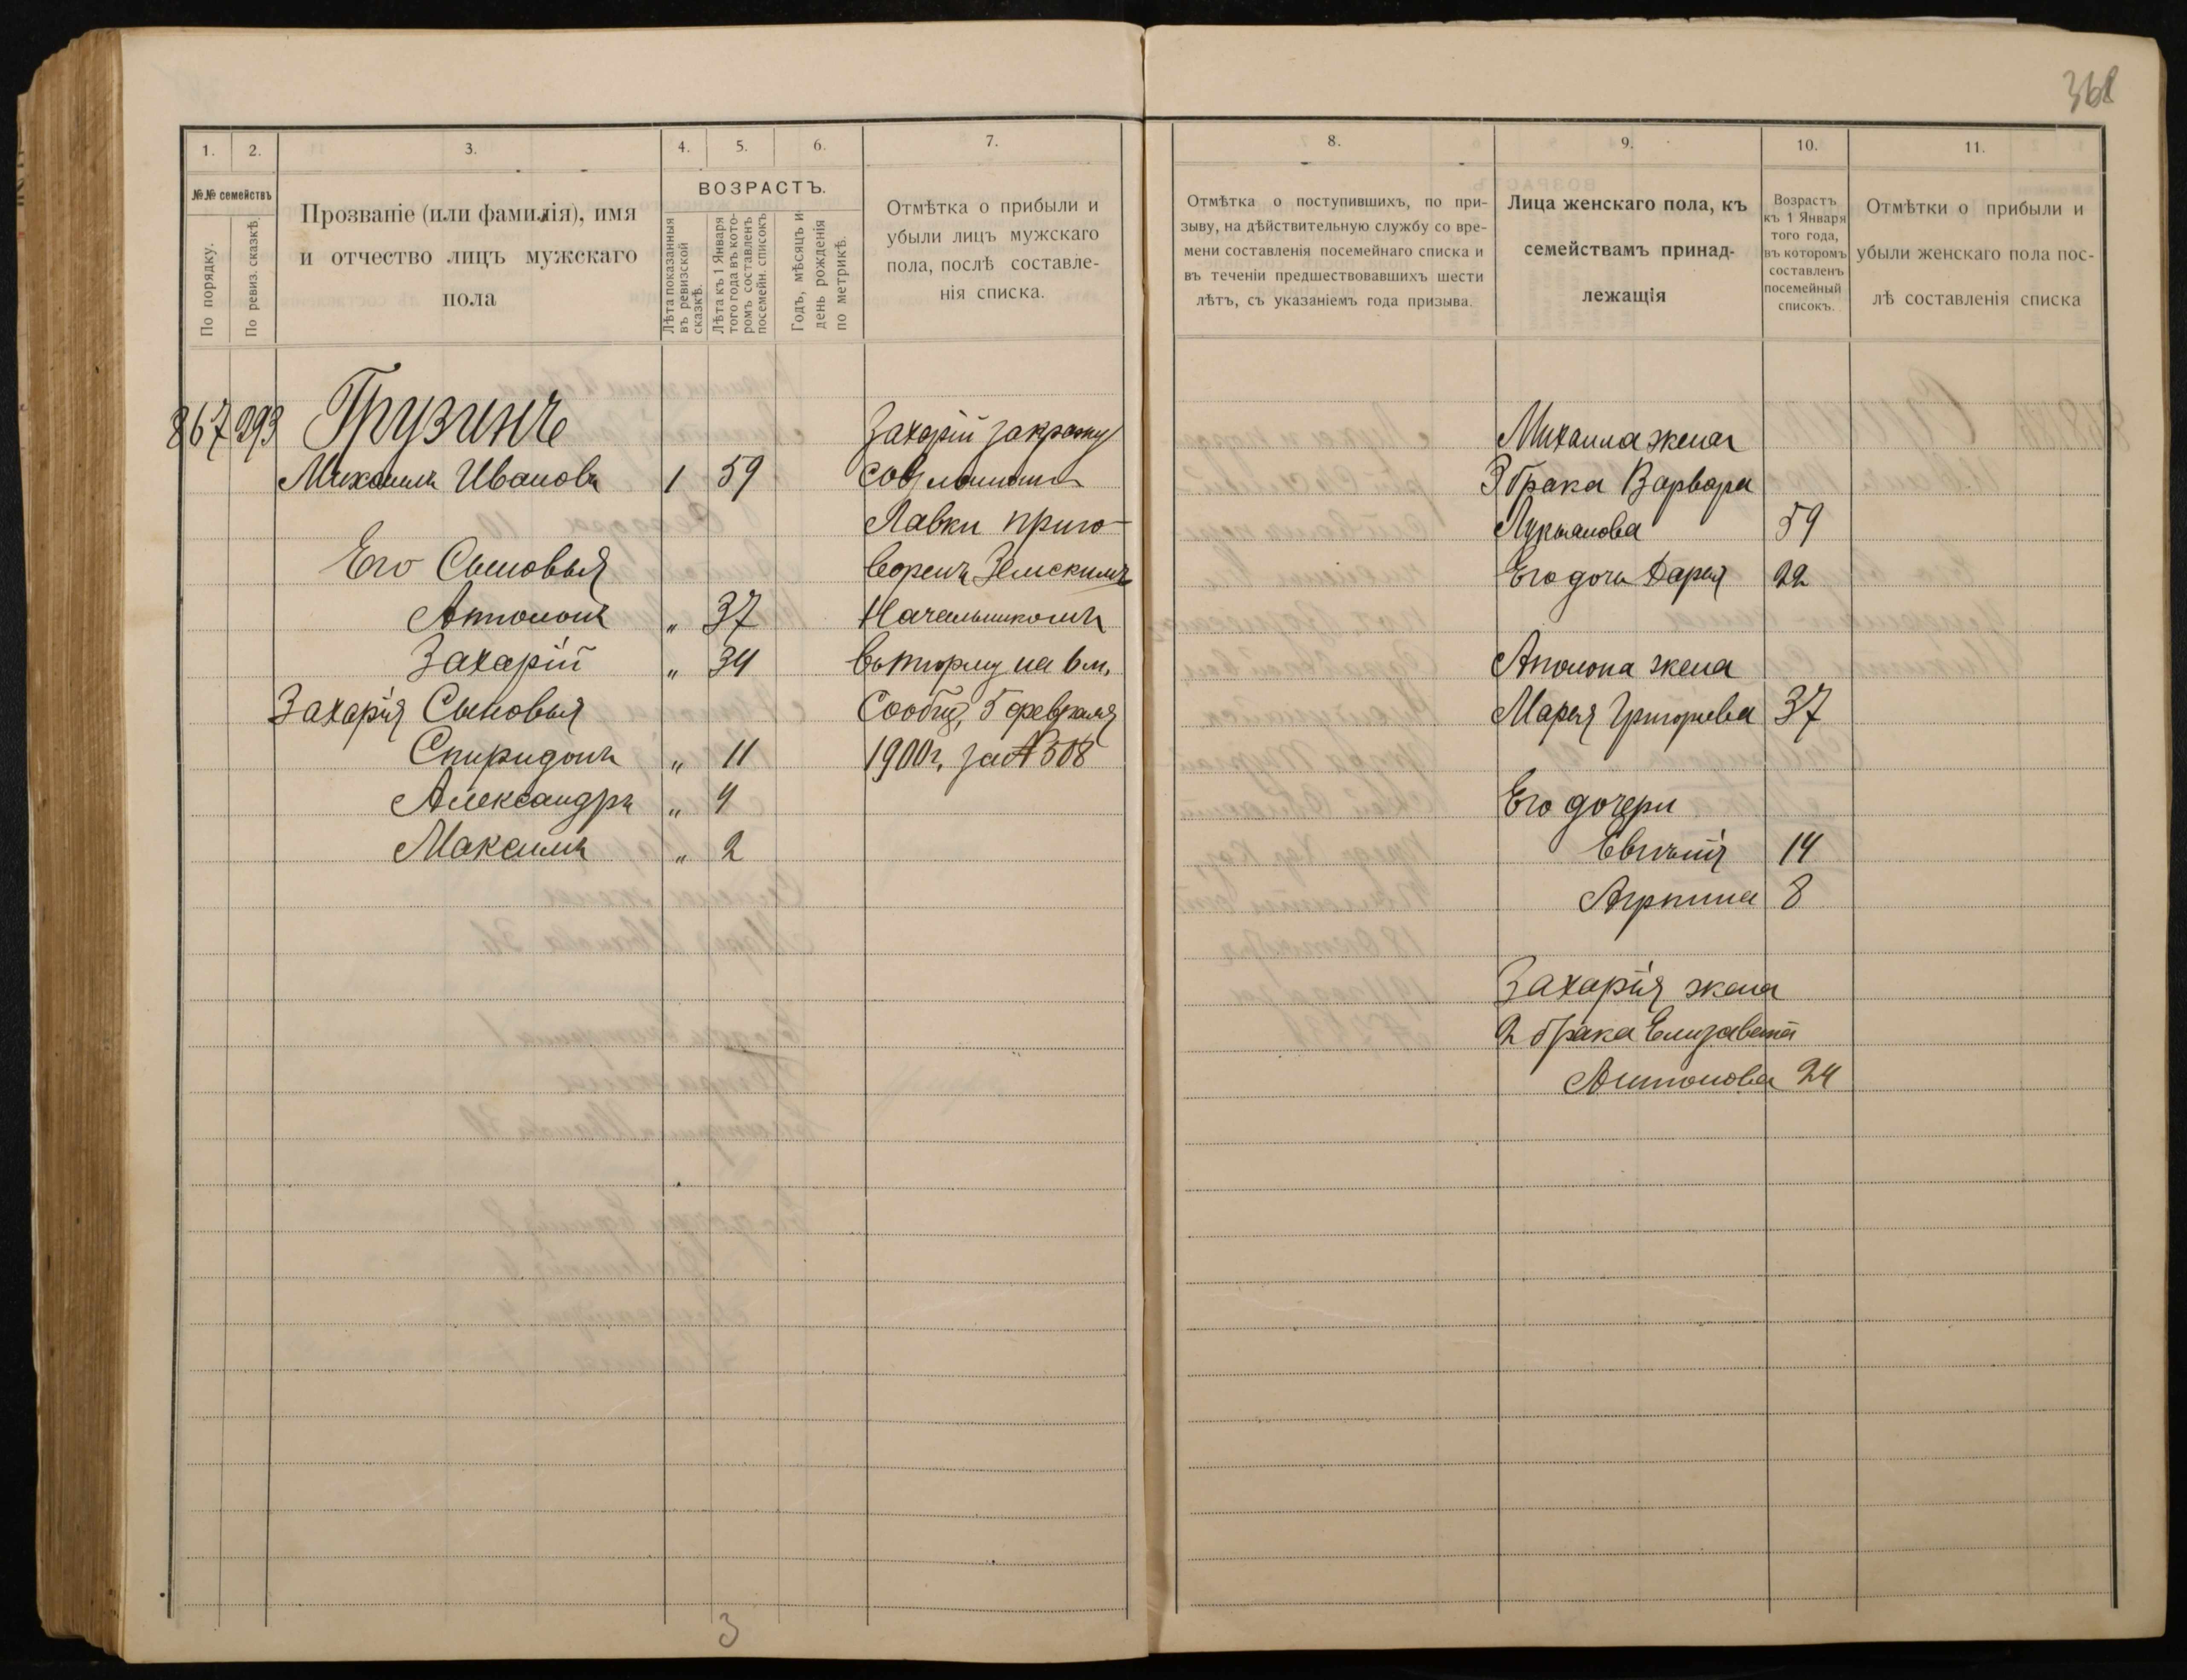 368
1.
2.
3.
4.
5.
6.
7.
№№ семействъ
По порядку.
По ревиз. сказкѣ.
Прозваніе (или фамилія), имя
и отчество лицъ мужскаго
пола
ВОЗРАСТЪ.
Лѣта показанныя
въ ревизской
сказкѣ.
Лѣта къ 1 Января
того года въ кото-
ромъ составленъ
посемейн. списокъ
Годъ, мѣсяцъ и
день рожденія
по метрикѣ.
Отмѣтка о прибыли и
убыли лицъ мужскаго
пола, послѣ составле-
нія списка.
867 293 Грузинъ
Михаилъ Ивановъ 1 59
Его Сыновья
Антонъ „ 37
Захарій „ 34
Захарія Сыновья
Спиридонъ „ 11
Александръ „ 4
Максимъ „ 2
Захарій за кражу
Лавки приго-
воренъ Земскимъ
Начальникомъ
въ тюрму на 6 м,
Сообщ, 5 февраля
1900г, за № 508
3
8.
9.
10.
11.
Отмѣтка о поступившихъ, по при-
зыву, на дѣйствительную службу со вре-
мени составленія посемейнаго списка и
въ теченіи предшествовавшихъ шести
лѣтъ, съ указаніемъ года призыва.
Лица женскаго пола, къ
семействамъ принад-
лежащія
Возрастъ
къ 1 Января
того года,
въ которомъ
составленъ
посемейный
списокъ.
Отмѣтки о прибыли и
убыли женскаго пола пос-
лѣ составленія списка
Михаила жена
3 брака Варвара
Лукьянова 59
Его дочь Дарья 22
Антона жена
Марья Григорьева 37
Его дочери
Евгенія 14
8
Захарія жена
2 брака Елизавета
Антонова 24